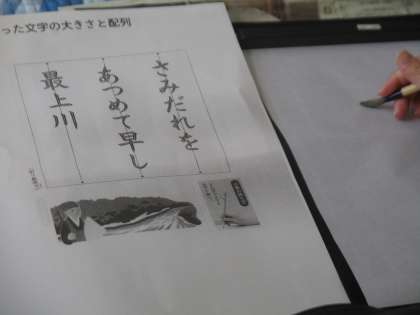 った文字の大きさと配列
さみだれを
あつめて早し
最上川